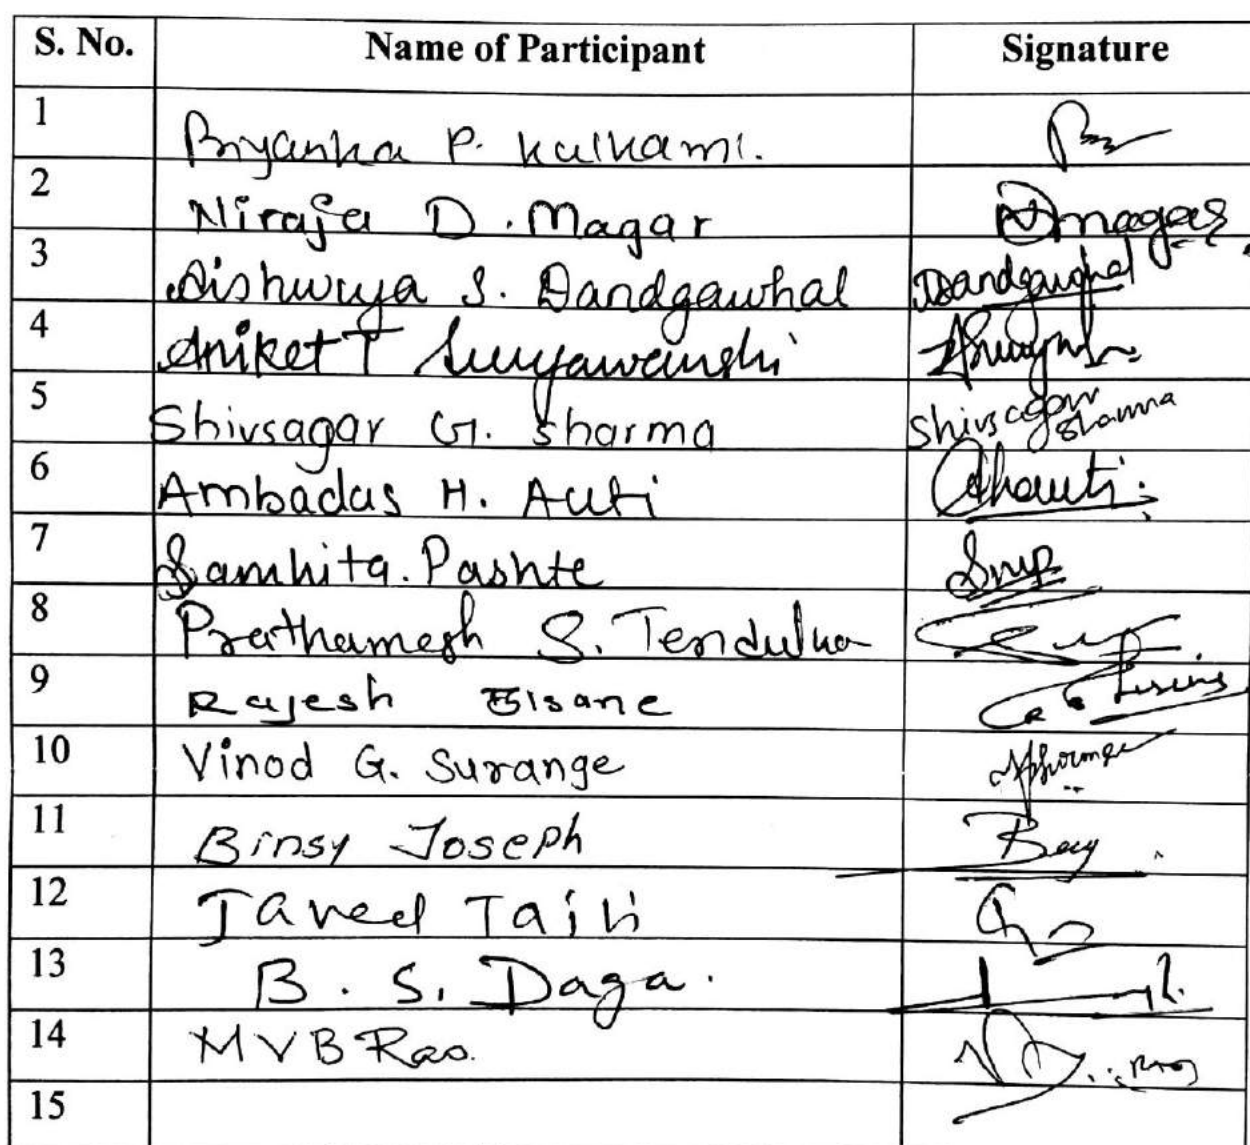 S. No. Name of Participant Signature
1 Priyanka P. Kulkarni.
2 Niraja D. Magar Dmagar
3 Aishwrya S. Dandgawhal Dandgawhal
4 Aniket T Suryawanshi
5 Shivsagar G. Sharma Shivsagar Sharma
6 Ambadas H. Auti Ahauti.
7 Samhita. Pashte Smp
8 Prathamesh S. Tendulkar
9 Rajesh
10 Vinod G. Surange
11 Binsy Joseph
12 Javed
13 B. S. Daga.
14 MVB Rao.
15